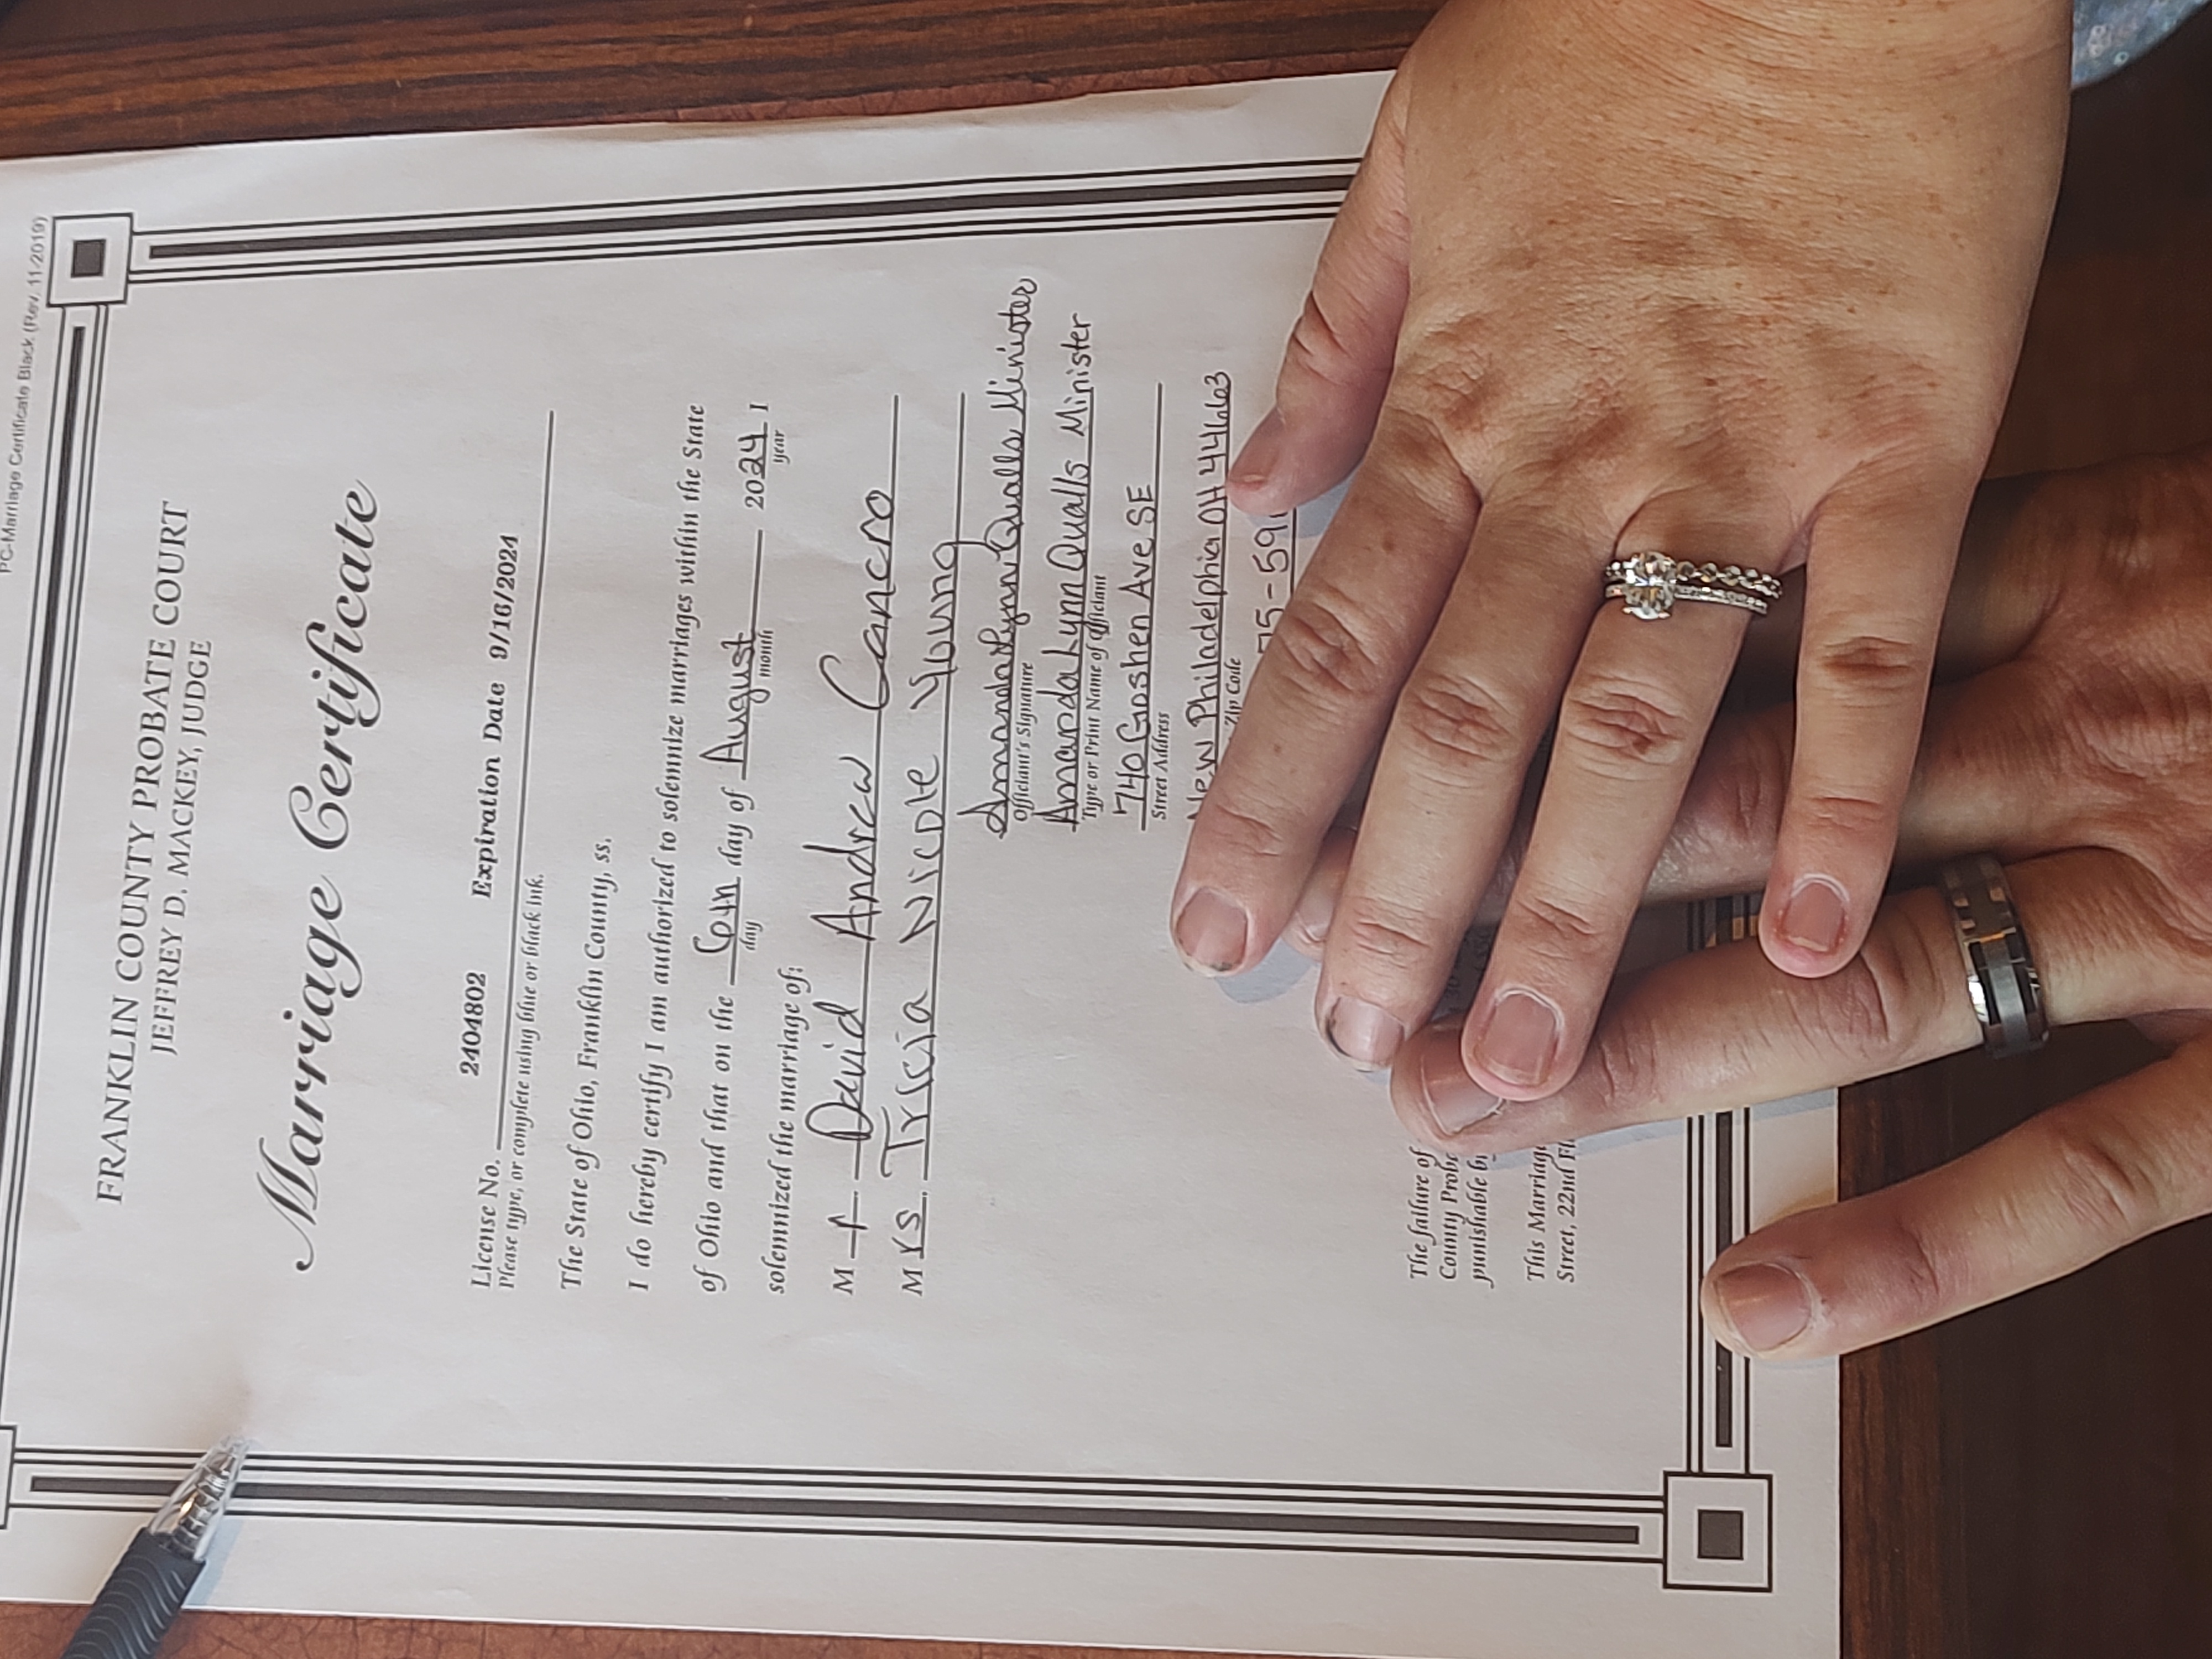 PC-Marriage Certificate Black (Rev. 11-2019)
FRANKLIN COUNTY PROBATE COURT
JEFFREY D. MACKEY, JUDGE
Marriage Certificate
License No. 2404802 Expiration Date 9/16/2024
Please type, or complete using blue or black ink.
The State of Ohio, Franklin County, ss.
I do hereby certify I am authorized to solemnize marriages within the State
of Ohio and that on the 6th day of August 2024 I
day month year
solemnized the marriage of:
Mr David Andrew Cancro
Mrs. Tricia Nicole Young
Amanda Lynn Qualls Minister
Officiant's Signature
Amanda Lynn Qualls Minister
Type or Print Name of Officiant
740 Goshen Ave SE
Street Address
New Philadelphia OH 44663
Zip Code
75-59
The failure of
County Prob
punishable b
This Marriag
Street, 22nd Fl